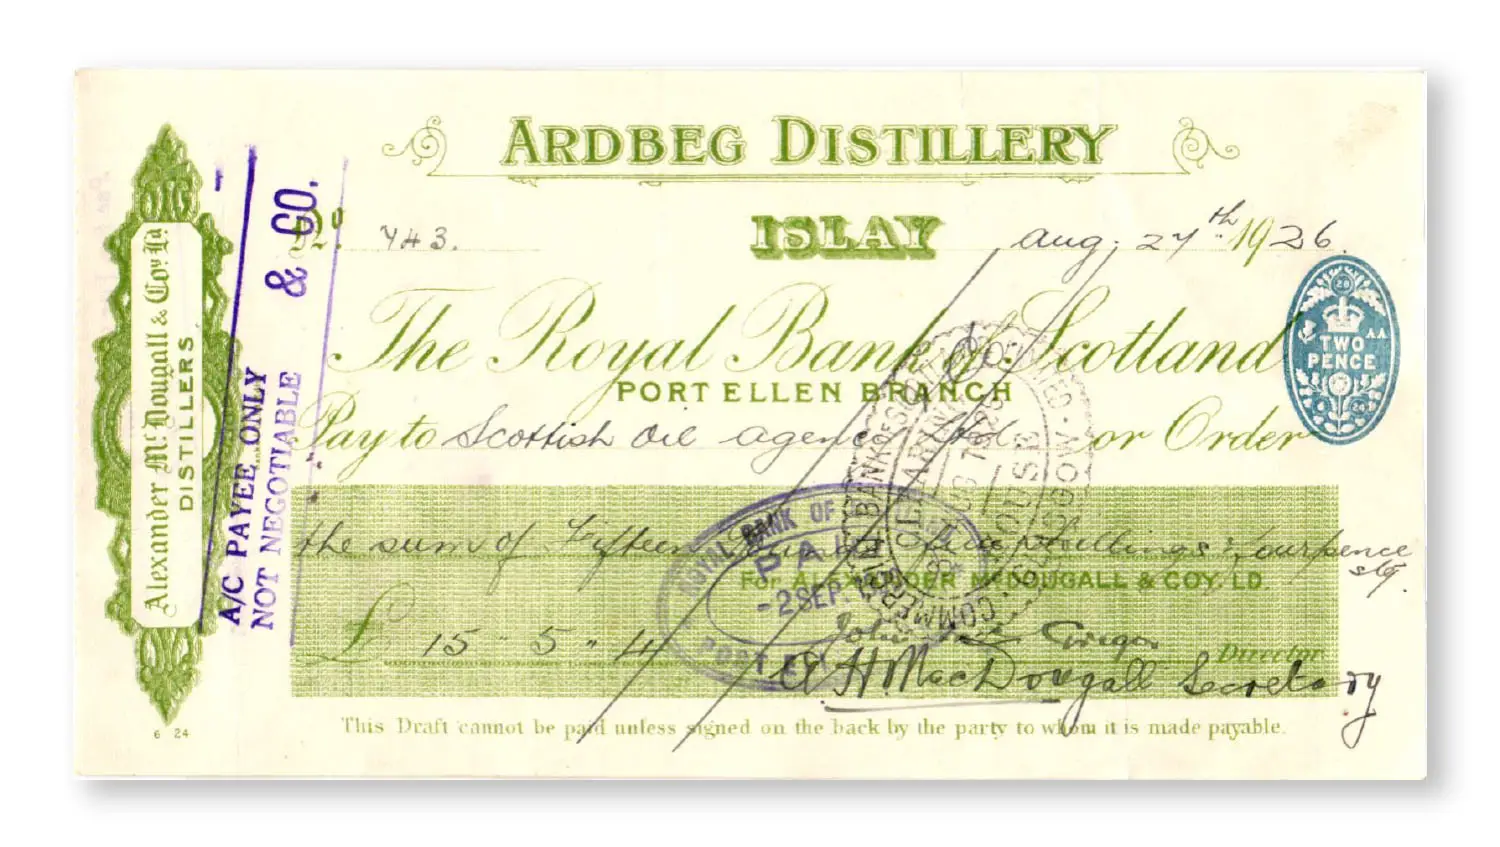 ARDBEG DISTILLERY
ISLAY
No. 743.
Aug. 27th 1926.
The Royal Bank of Scotland
PORT ELLEN BRANCH
Pay to Scottish Oil Agency Ltd or Order
the sum of Fifteen Pounds five shillings & fourpence
stg.
For ALEXANDER McDOUGALL & COY. LD.
£ 15 " 5 " 4
Director.
A H MacDougall Secretary
This Draft cannot be paid unless signed on the back by the party to whom it is made payable.
Alexander McDougall & Coy Ld
DISTILLERS.
6 24
& CO.
A/C PAYEE ONLY
NOT NEGOTIABLE
TWO
PENCE
ROYAL BANK OF
PAID
-2 SEP.
PORT
CLEARING
HOUSE
GLASGOW